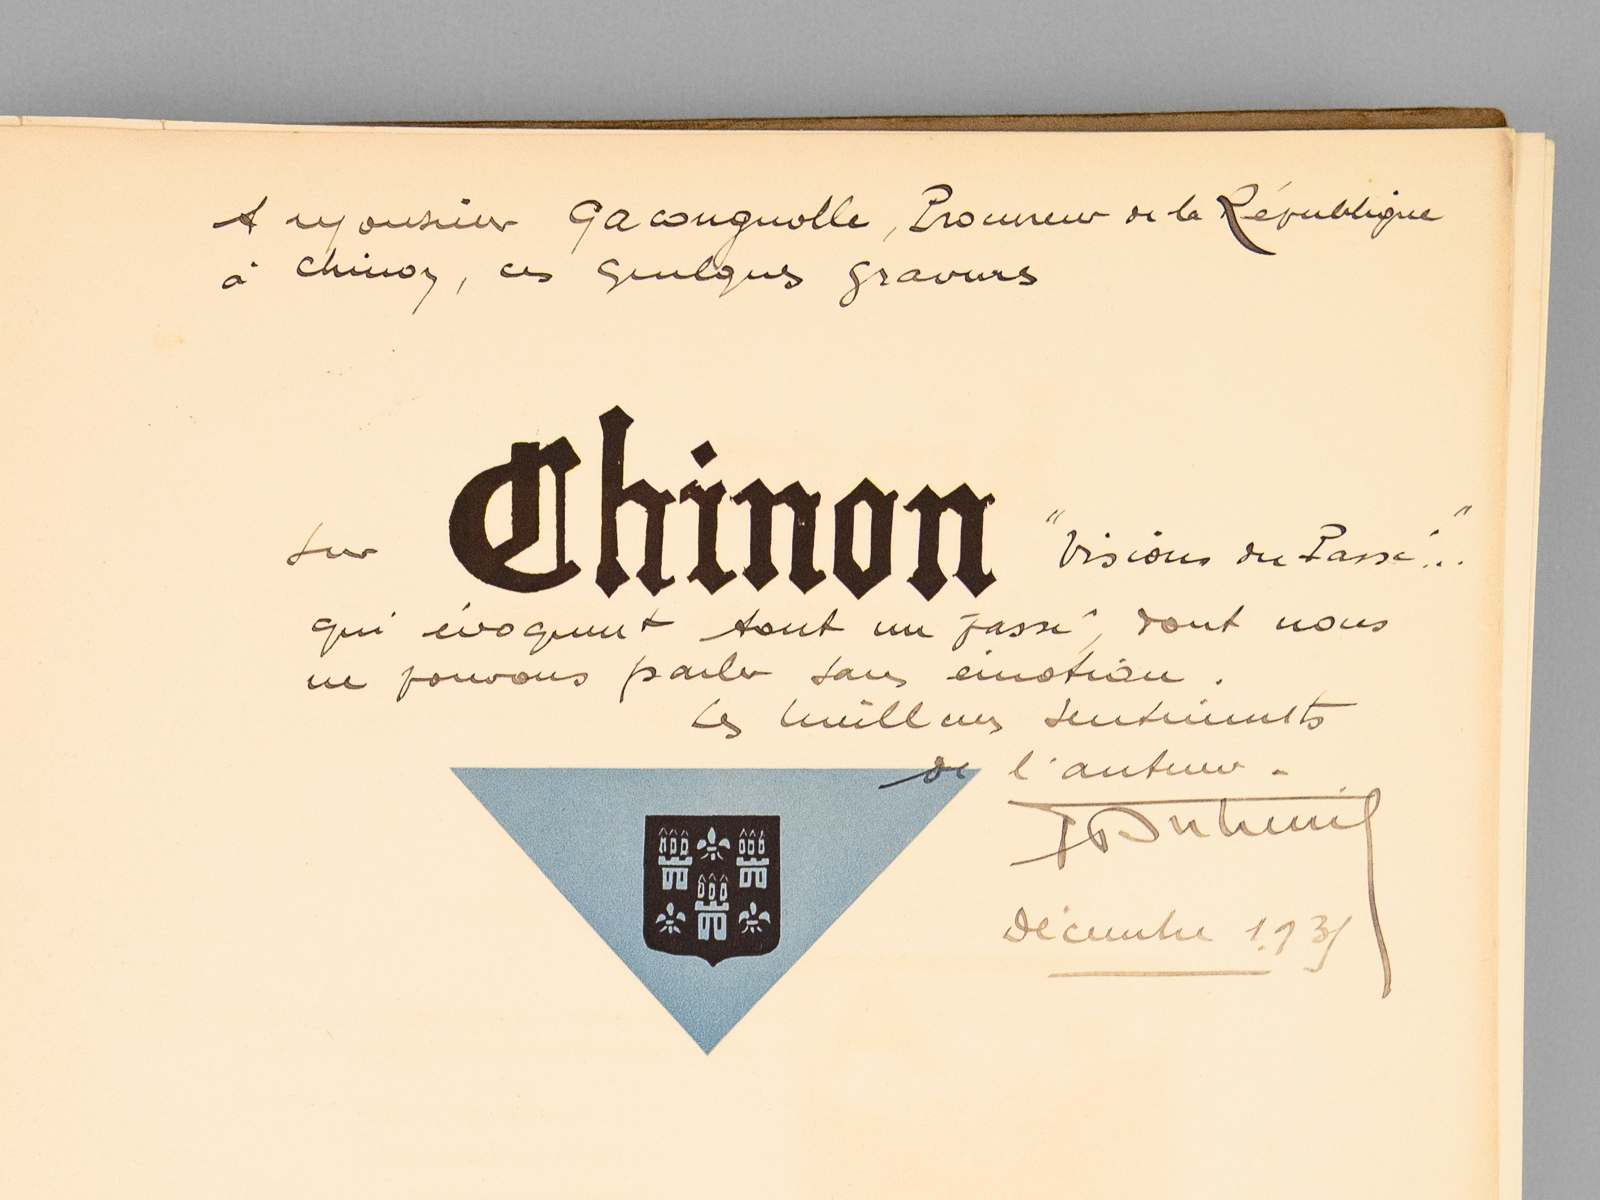 A Monsieur Gacougnolle, Procureur de la République
à Chinon, ces quelques gravures
sur Chinon "Visions du Passé"...
qui évoquent tout un passé, dont nous
ne pouvons parler sans émotion.
Les meilleurs sentiments
de l'auteur.
Décembre 1935